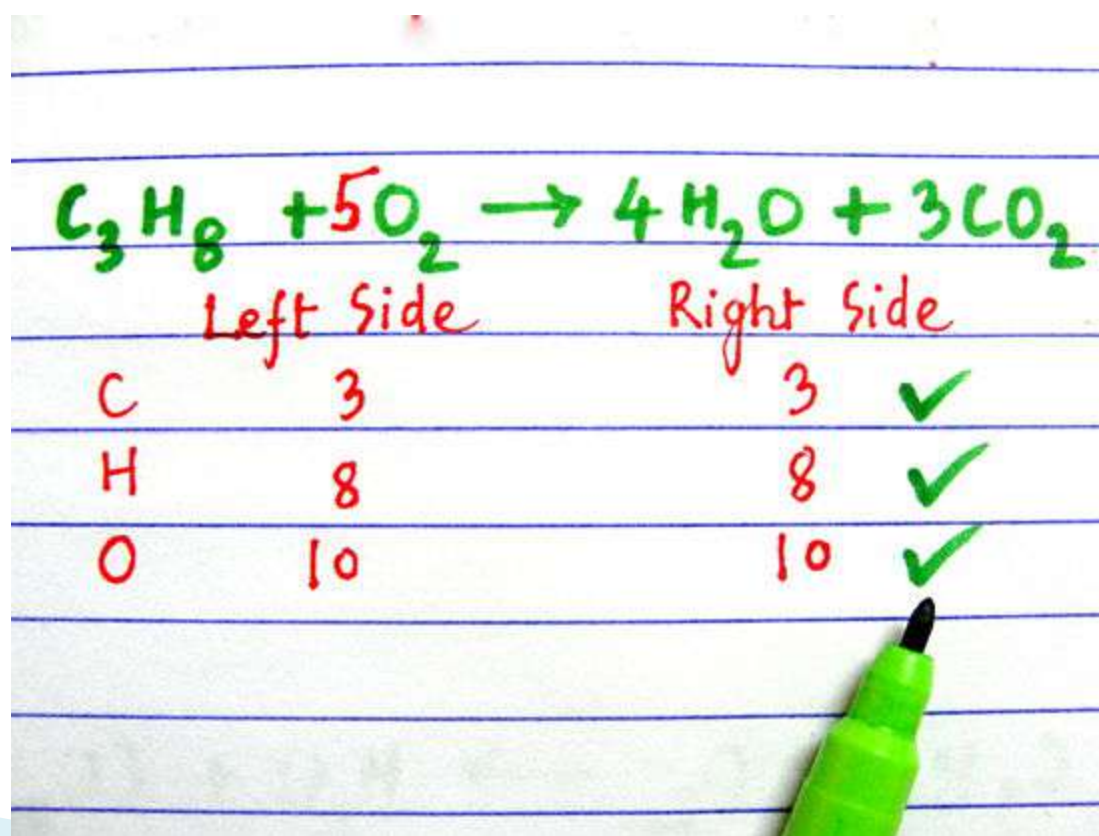 C₃H₈ +5O₂ → 4H₂O + 3CO₂
Left Side Right Side
C 3 3 ✓
H 8 8 ✓
O 10 10 ✓